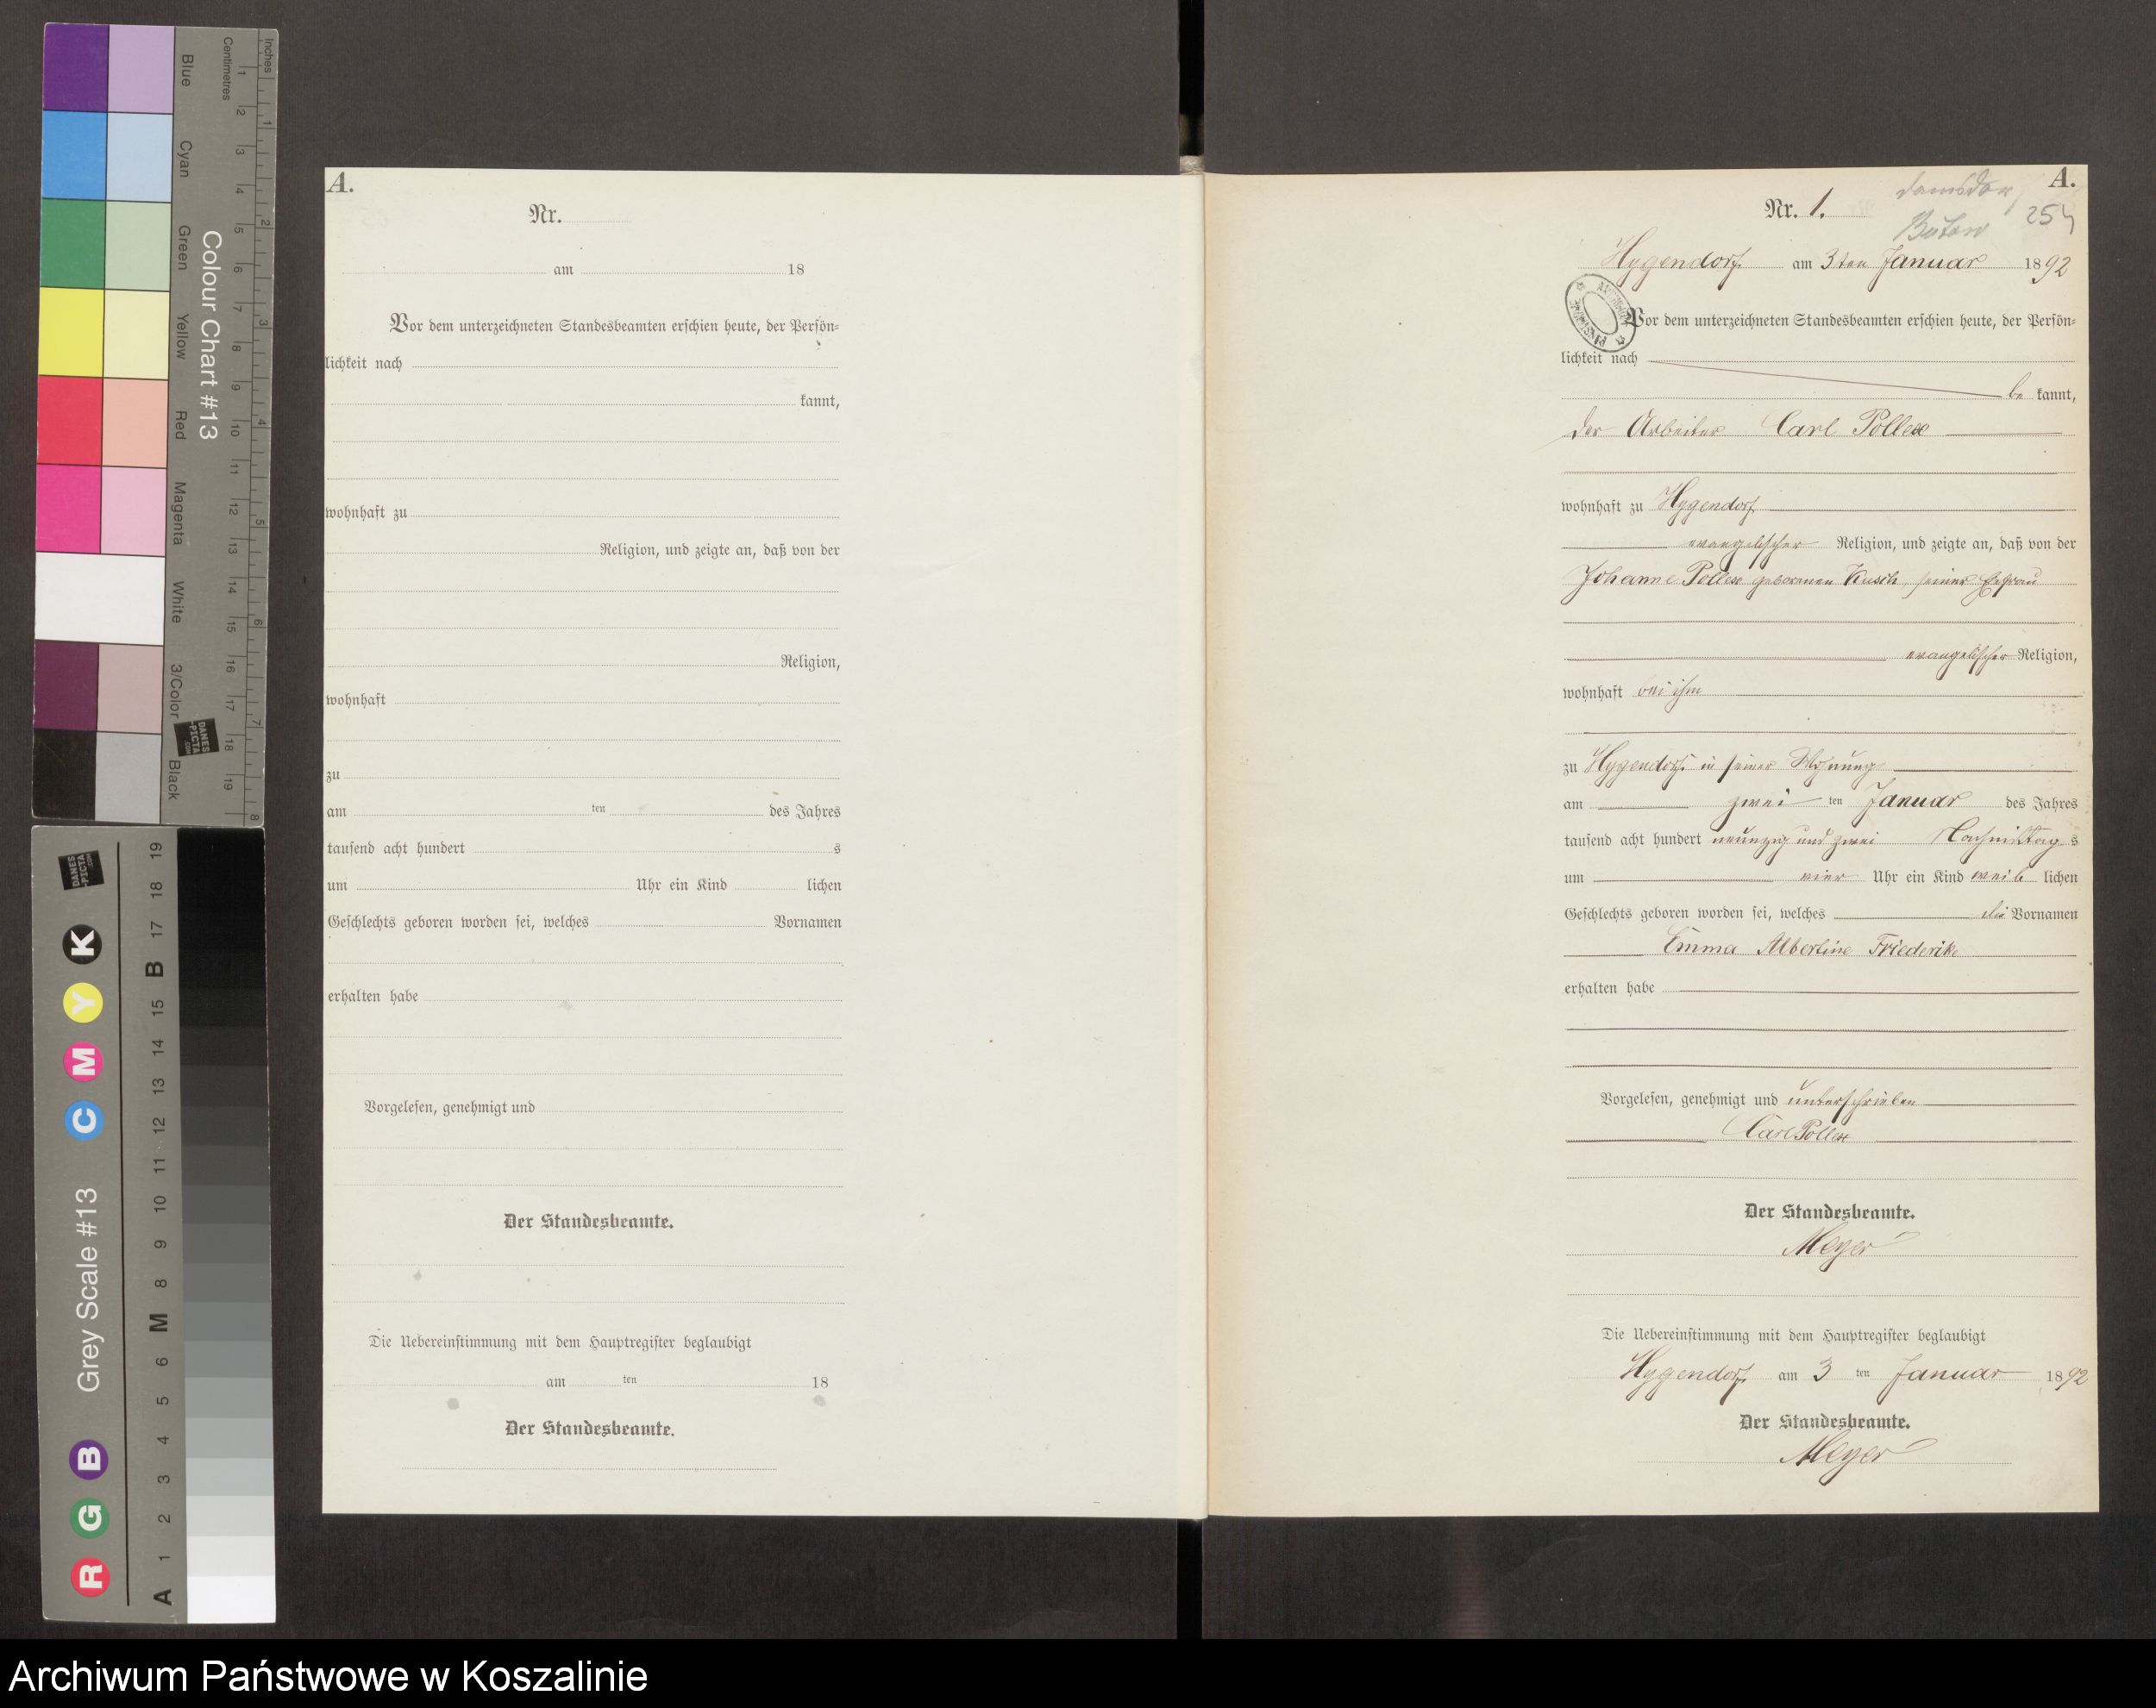 Blue
Cyan
Green
Yellow
Red
Magenta
White
3/Color
Black
Colour Chart #13
Centimetres
Inches
1 2 3 4 5 6 7 8 9 10 11 12 13 14 15 16 17 18 19
1 2 3 4 5 6 7 8
DANES
-PICTA
.COM
DANES
-PICTA
.COM
Grey Scale #13
R G B C M Y K
A 1 2 3 4 5 6 M 8 9 10 11 12 13 14 15 B 17 18 19
A.
Nr.
am 18
Vor dem unterzeichneten Standesbeamten erschien heute, der Persön-
lichkeit nach
kannt,
wohnhaft zu
Religion, und zeigte an, daß von der
Religion,
wohnhaft
zu
am ten des Jahres
tausend acht hundert s
um Uhr ein Kind lichen
Geschlechts geboren worden sei, welches Vornamen
erhalten habe
Vorgelesen, genehmigt und
Der Standesbeamte.
Die Uebereinstimmung mit dem Hauptregister beglaubigt
am ten 18
Der Standesbeamte.
A.
Damsdorf
Nr. 1.
Bütow
Hygendorf am 3ten Januar 1892
Vor dem unterzeichneten Standesbeamten erschien heute, der Persön-
lichkeit nach
be kannt,
der Arbeiter Carl Pollex
wohnhaft zu Hygendorf
evangelischer Religion, und zeigte an, daß von der
Johanne Pollex geborenen Kusch, seiner Ehefrau
evangelischer Religion,
wohnhaft bei ihm
zu Hygendorf in seiner Wohnung
am zwei ten Januar des Jahres
tausend acht hundert neunzig und zwei Nachmittag s
um vier Uhr ein Kind weib lichen
Geschlechts geboren worden sei, welches die Vornamen
Emma Albertine Friederike
erhalten habe
Vorgelesen, genehmigt und unterschrieben
Carl Pollex
Der Standesbeamte.
Meyer
Die Uebereinstimmung mit dem Hauptregister beglaubigt
Hygendorf am 3 ten Januar 1892
Der Standesbeamte.
Meyer
Archiwum Państwowe w Koszalinie